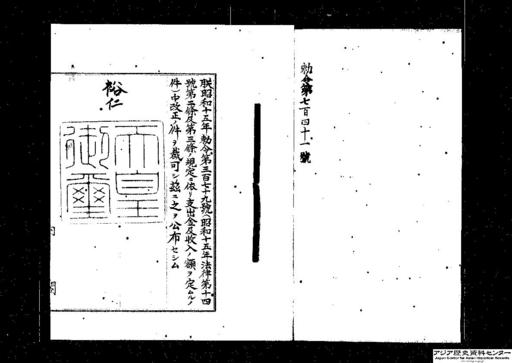 勅令第七百四十一號
朕昭和十五年勅令第三百七十九號(昭和十五年法律第十四
號第二條及第三條ノ規定ニ依リ支出金及收入ノ額ヲ定ムルノ
件)中改正ノ件ヲ裁可シ茲ニ之ヲ公布セシム
裕仁
天皇
御璽
内
閣
アジア歴史資料センター
Japan Center for Asian Historical Records